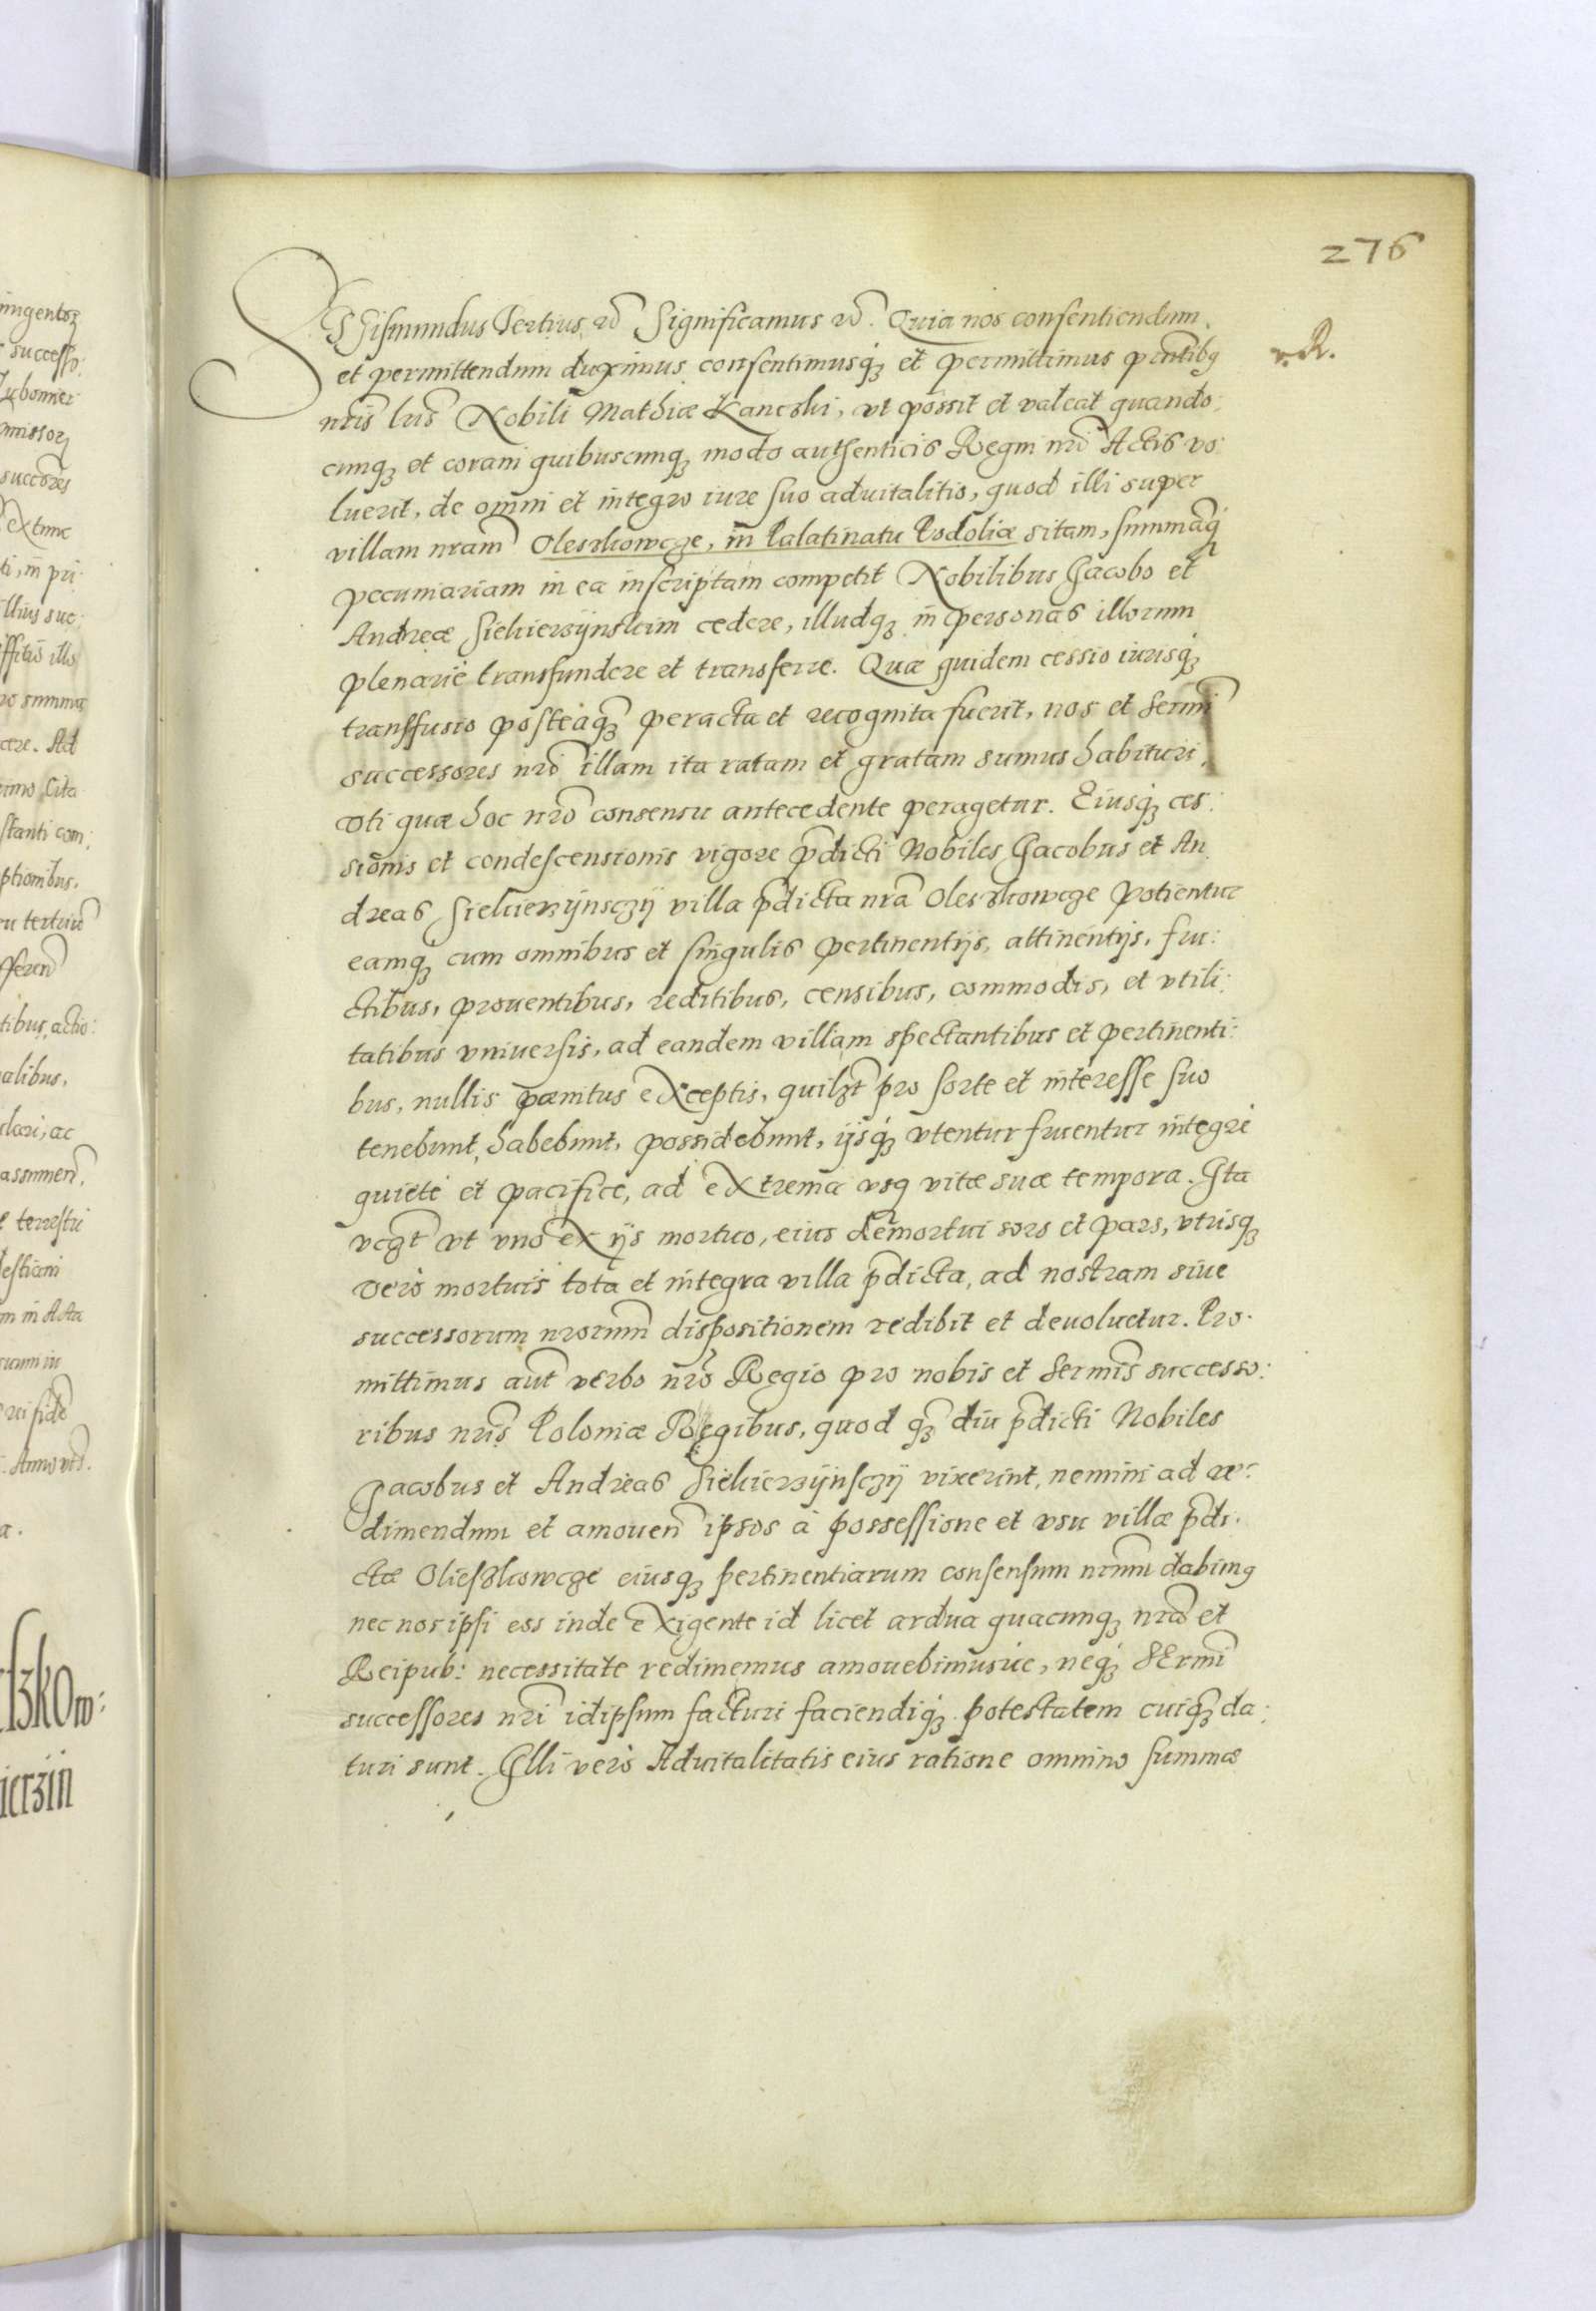 276
Sigismundus Tertius, etc. Significamus etc. Quia nos consentiendum,
rR.
et permittendum duximus consentimusq3 et permittimus pñtibq
nr̃is lr̃is Nobili Mathiæ Kaneski, vt possit et valeat quando:
cunq3 et coram quibuscunq3 modo authenticis Regni nr̃i Actis vo:
luerit, de omni et integro iure suo aduitalitio, quod illi super
villam nram̃ Oleszkowcze, in Palatinatu Podoliæ sitam, summaq3
pecuniariam in ea inscriptam competit Nobilibus Jacobo et
Andreæ Siekierzÿnskim cedere, illudq3 in personas illorum
plenariè transfundere et transferre. Quæ quidem cessio iurisq3
transfusio posteaq3 peracta et recognita fuerit, nos et Sermi
successores nr̃i illam ita ratam et gratam sumus habituri,
vti quæ hoc nr̃o consensu antecedente peragetur. Eiusq3 ces:
sionis et condescensionis vigore p̃dicti Nobiles Jacobus et An
dreas Siekierzÿnsczÿ villa p̃dicta nr̃a Oleszkowcze potientur
eamq3 cum omnibus et singulis pertinentijs, attinentijs, fru:
ctibus, prouentibus, reditibus, censibus, commodis, et vtili:
tatibus vniuersis, ad eandem villam spectantibus et pertinenti:
bus, nullis pænitus exceptis, quilzt pro sorte et interesse suo
tenebunt, habebunt, possidebunt, ijsq3 vtentur fruentur integrè
quietè et pacificè, ad extrema vsq vitæ suæ tempora. Ita
vczt vt vno ex ijs mortuo, eius demortui sors et pars, vtrisq3
verò mortuis tota et integra villa p̃dicta, ad nostram siue
successorum nrorum̃ dispositionem redibit et deuoluetur. Pro:
mittimus aut̃ verbo nr̃o Regio pro nobis et Sermis successo:
ribus nr̃is Poloniæ Regibus, quod q3 diu p̃dicti Nobiles
Jacobus et Andreas Siekierzÿnsczÿ vixerint, nemini ad re:
dimendum et amouen̄ ipsos à possessione et vsu villæ p̃di:
ctæ Olieszkowcze eiusq3 pertinentiarum consensum nrum̃ dabimq
nec nos ipsi eos inde exigente id licet ardua quacunq3 nr̃a et
Reipub: necessitate redimemus amouebimusúe, neq3 SErmi
successores nr̃i idipsum facturi faciendiq3 potestatem cuiq3 da:
turi sunt. Illi verò Aduitalitatis eius ratione omnino summæ